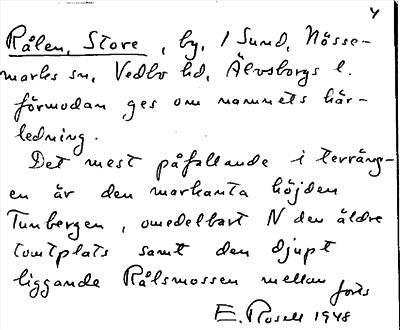 4
Rålen, Store, by, 1 Sund, Nösse-
marks sn, Vedbo hd, Älvsborgs l.
förmodan ges om namnets här-
ledning.
Det mest påfallande i terräng-
en är den markanta höjden
Tunbergen, omedelbart N den äldre
tomtplats samt den djupt
liggande Rålsmossen mellan
forts
E. Rosell 1948